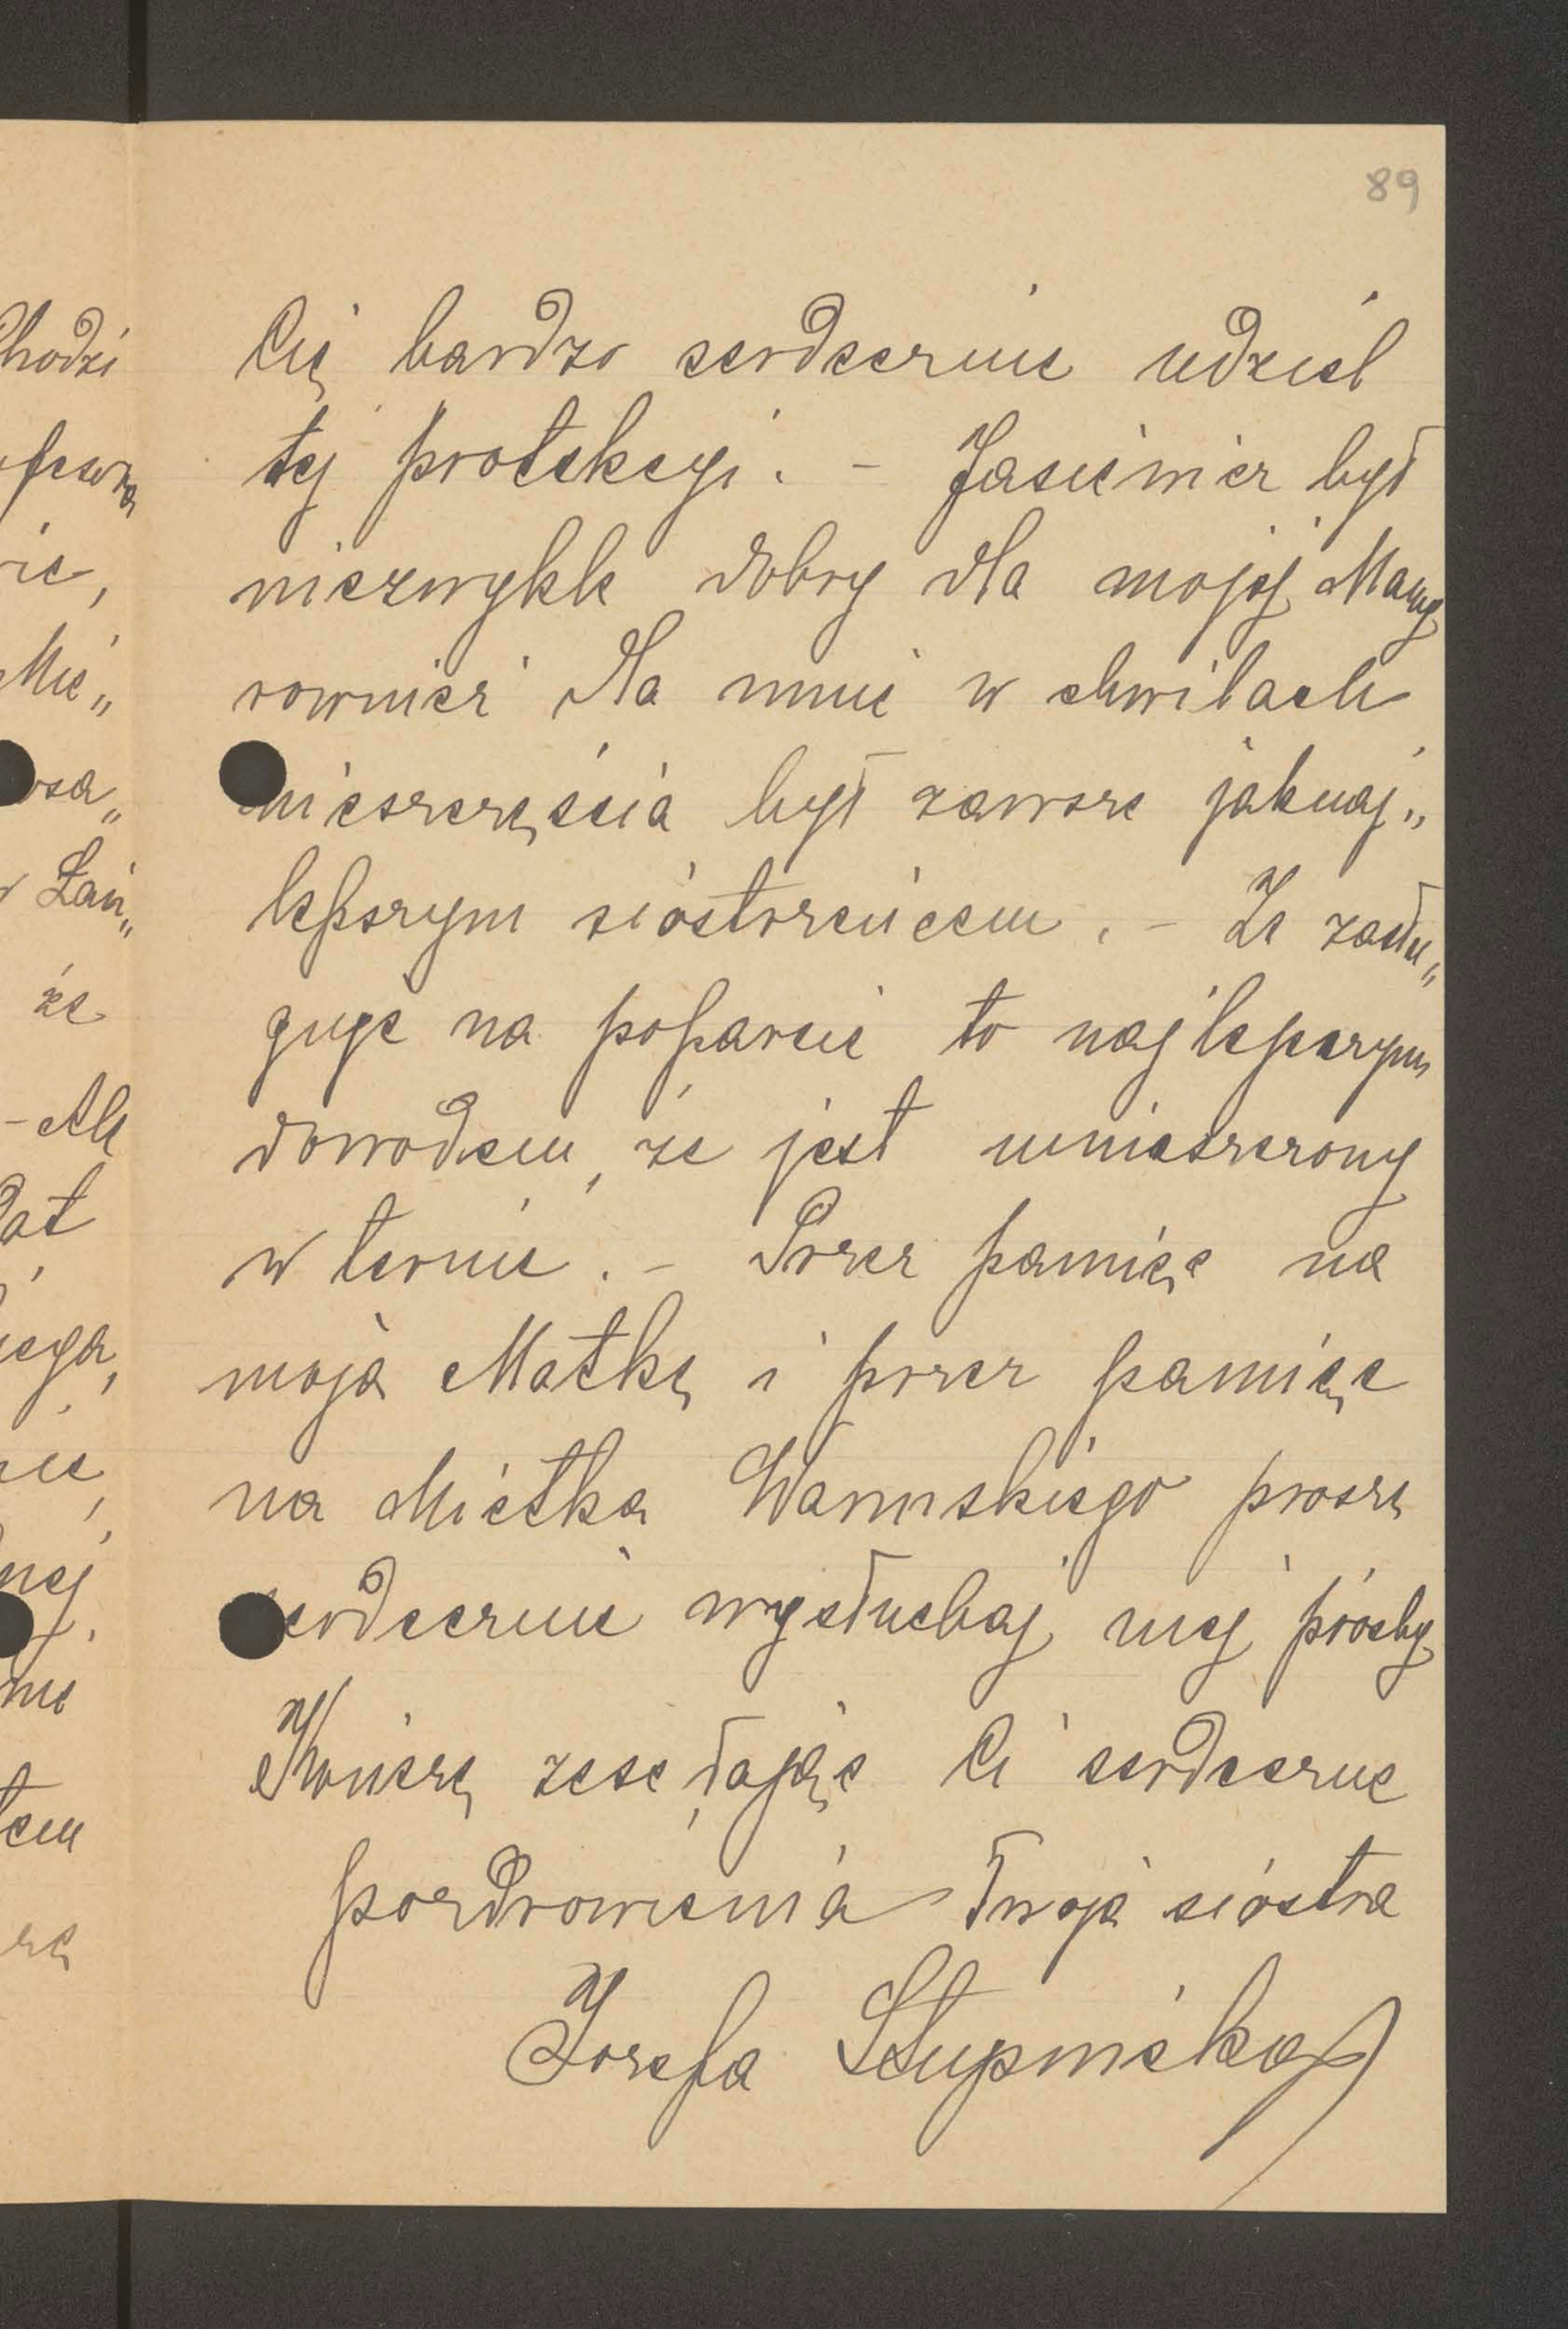 89
Cię bardzo serdecznie udziel
tej protekcyi. – Jasieniek był
niezwykle dobry dla mojej Mamy
rownież dla mnie w chwilach
nieszczęścia był zawsze jaknaj„
lepszym siostrzeńcem. – Że zasłu„
guje na poparcie to najlepszym
dowodem, że jest umieszczony
w ternie. – Przez pamięc na
moją Matkę i przez pamięc
na Mietka Warmskiego proszę
serdecznie wysłuchaj mej prośby
Kończę zesełając Ci serdeczne
pozdrowienia Twoja siostra
Jozefa Słupnicka